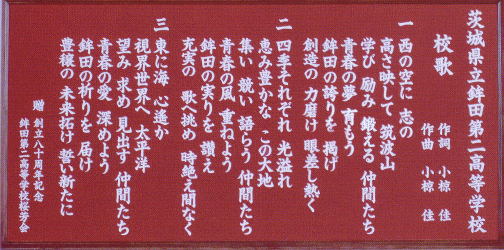 茨城県立鉾田第二高等学校
校歌
作詞 小椋 佳
作曲 小椋 佳
一 西の空に 志の
高さ映して 筑波山
学び 励み 鍛える 仲間たち
青春の夢 育もう
鉾田の誇りを 掲げ
創造の 力磨け 眼差し熱く
二 四季それぞれ 光溢れ
恵み豊かな この大地
集い 競い 語らう 仲間たち
青春の風 重ねよう
鉾田の実りを 讃え
充実の 歌へ挑め 時絶え間なく
三 東に海 心遙か
視界世界へ 太平洋
望み 求め 見出す 仲間たち
青春の愛 深めよう
鉾田の祈りを 届け
豊穣の 未来拓け 誓い新たに
贈 創立八十周年記念
鉾田第二高等学校桜芳会